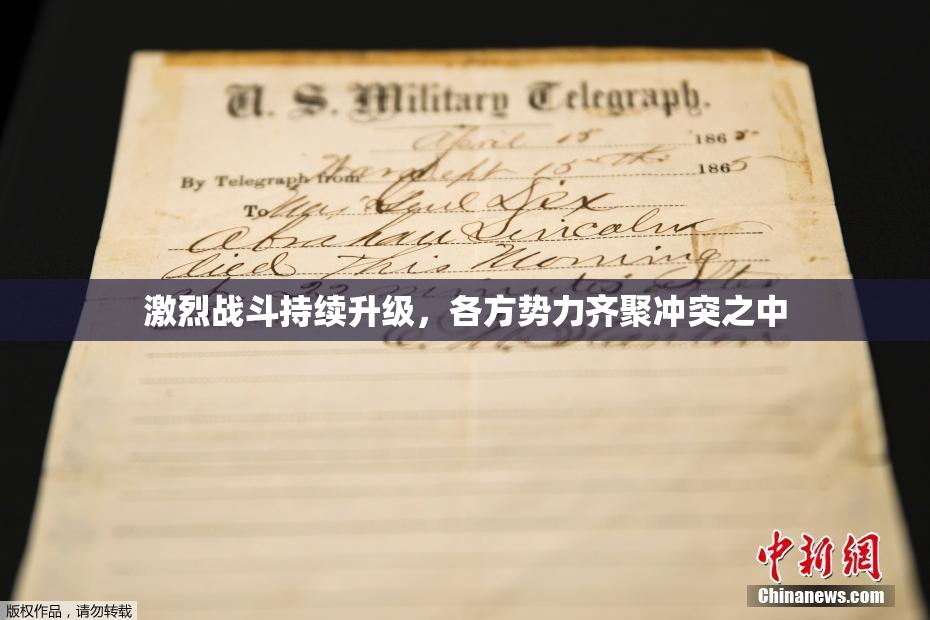 U. S. Military Telegraph.
April 15 1865
By Telegraph from War Dept 15th 1865
To Maj Genl Dix
Abraham Lincoln
died This Morning
at 22 minutes after
激烈战斗持续升级，各方势力齐聚冲突之中
E. M. Stanton
中新網
Chinanews.com
版权作品，请勿转载